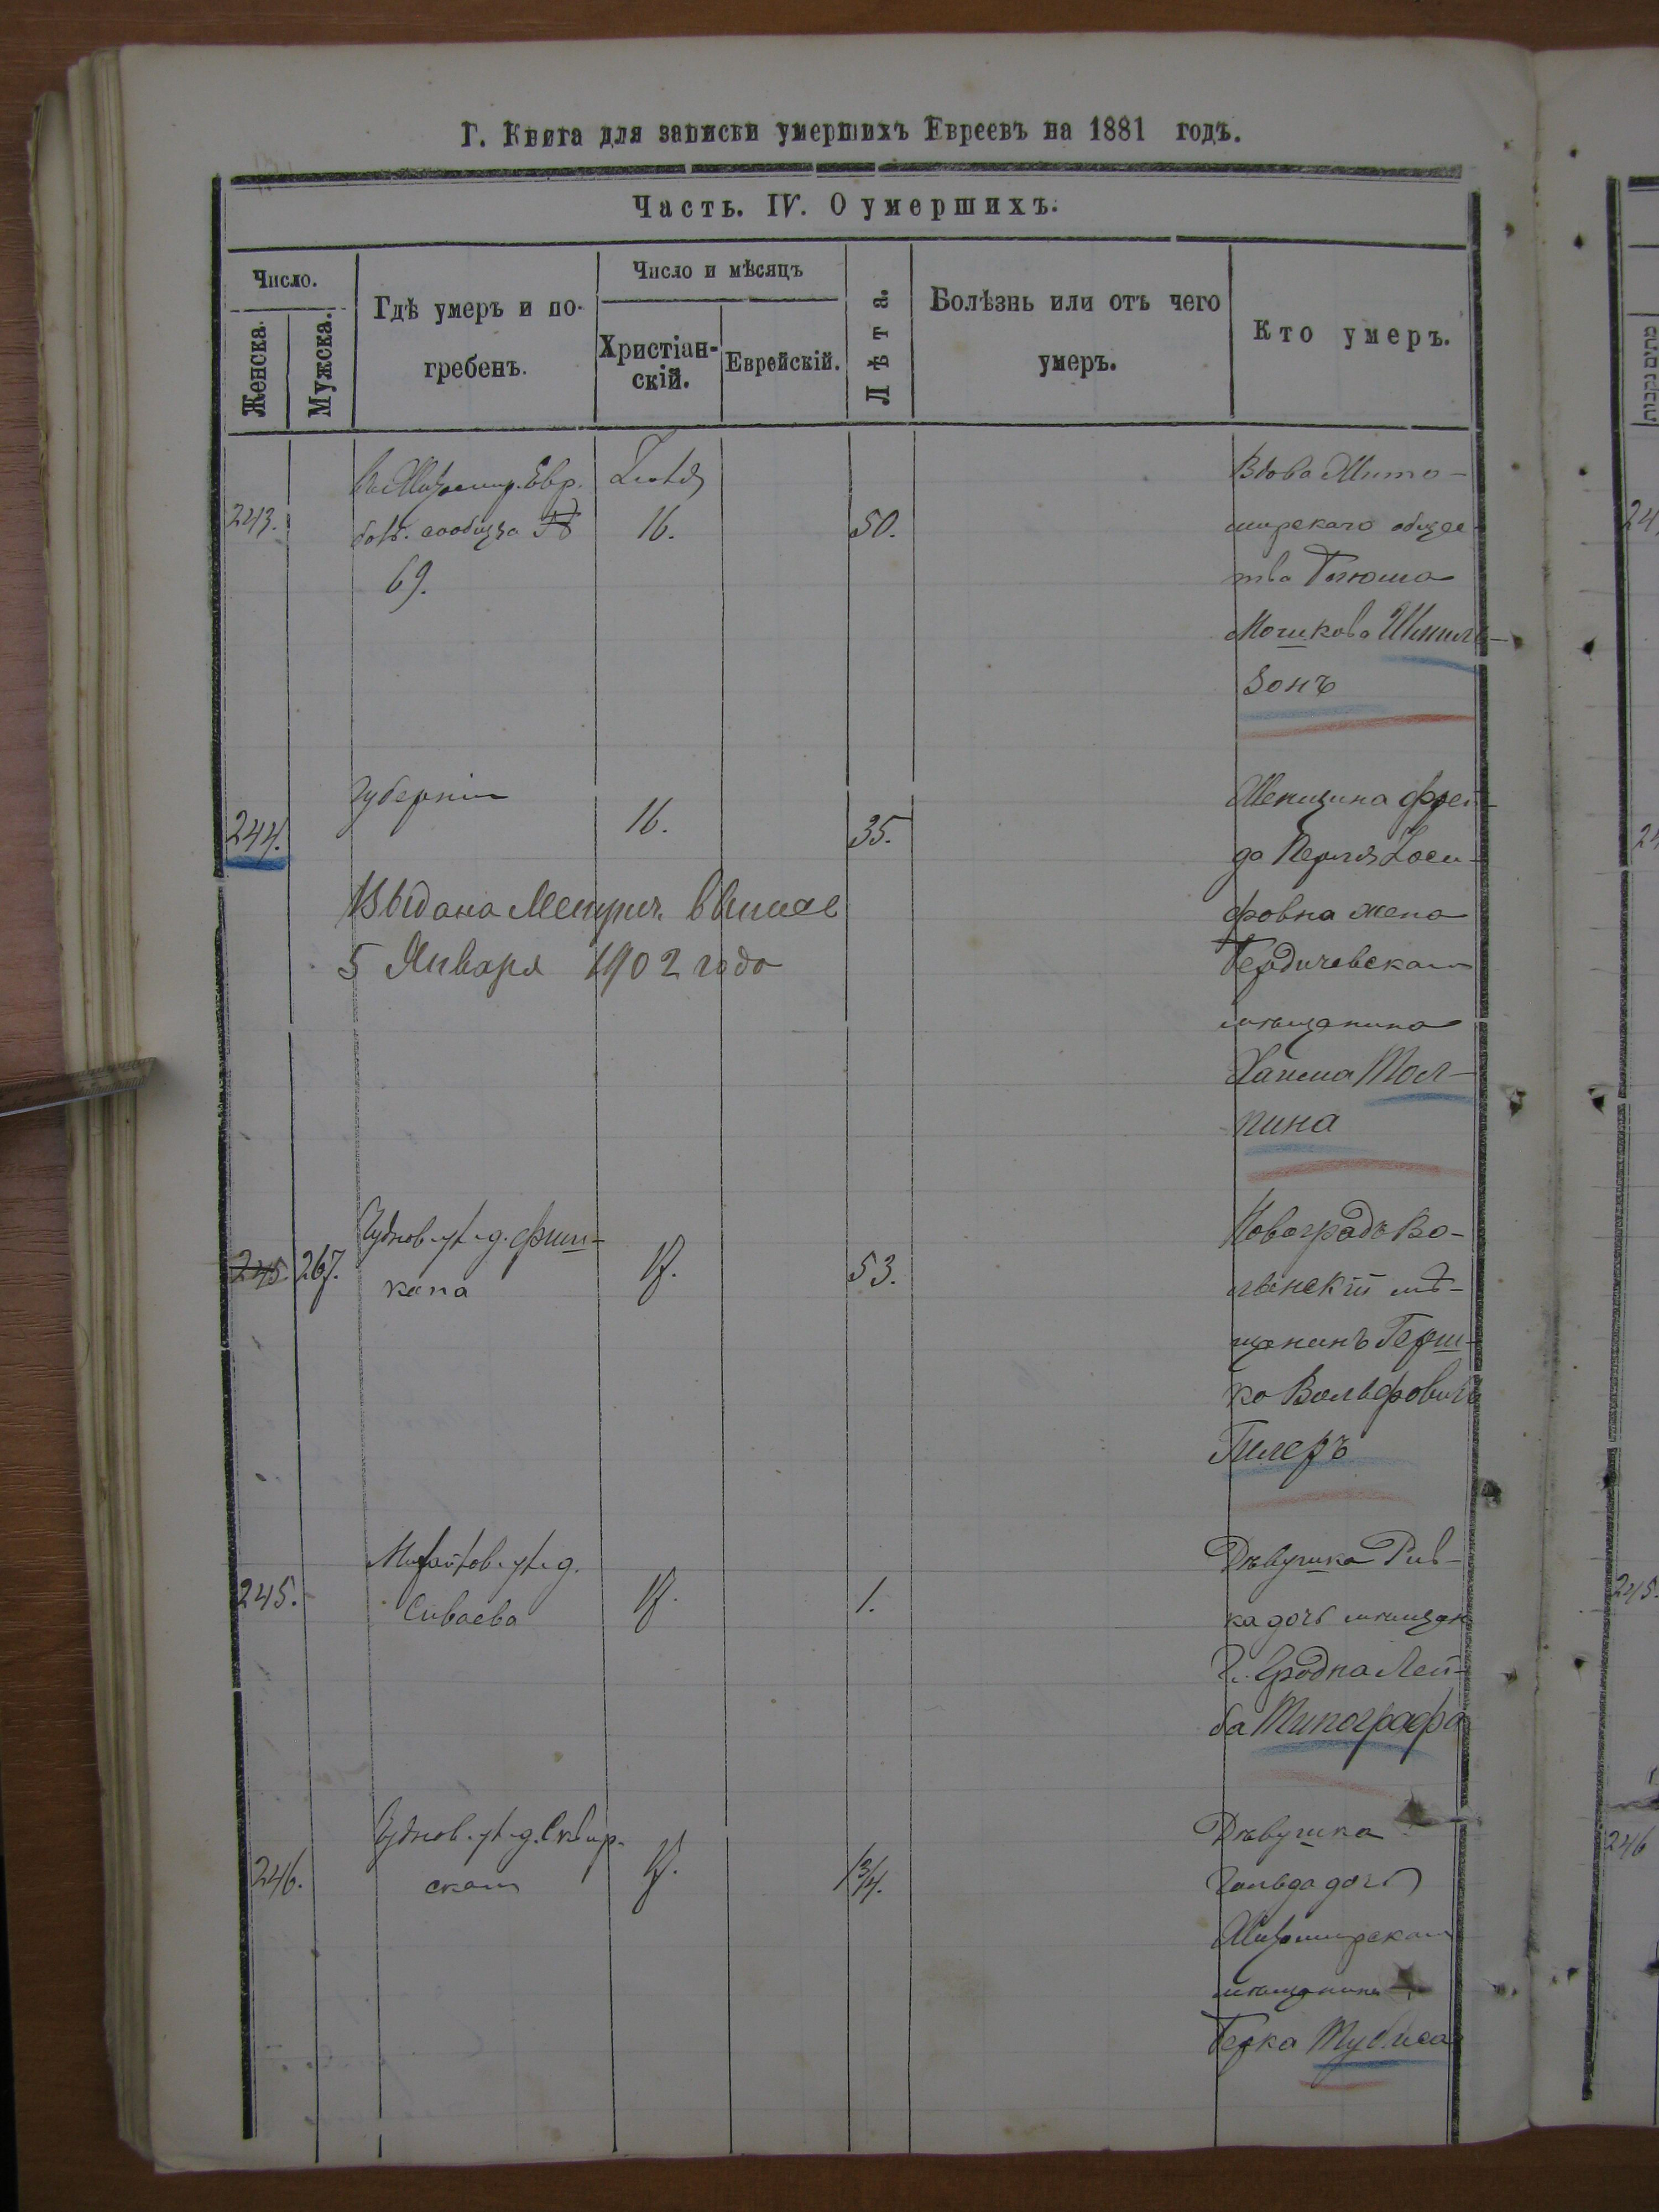 Г. Книга для записки умершихъ Евреевъ на 1881 годъ.
Часть. IV. О умершихъ.
Число.
Женска.
Мужска.
Гдѣ умеръ и по-
гребенъ.
Число и мѣсяцъ
Христіан-
скій.
Еврейскій.
Лѣта.
Болѣзнь или отъ чего
умеръ.
Кто умеръ.
243.
Евр.
сообщ
69.
16.
50.
Вдова Жито-
мирскаго общес-
тва
Мошкова Шмиль-
зонъ
244.
Губерніи
16.
35.
Женщина Фрей-
да Перля Іоси-
фовна жена
Бердичевскаго
мѣщанина
Хаима Тол-
пина
Выдана Метрич. выпись
5 Января 1902 года
245.
267.
Чуднов. ул. д. Фиш-
мана
17.
53.
Новоградъ Во-
лынскій мѣ-
щанинъ Герш-
ко Вольфовичъ
Гилеръ
245.
Михайлов. ул. д.
Сиваева
17.
1.
Дѣвушка Рив-
ка дочь мѣщан
г. Гродна Лей-
ба Типографа
246.
Чуднов. ул. д. Сквир-
скаго
17.
1 3/4.
Дѣвушка
Гольда дочь
Житомирскаго
мѣщанина
Берка Тубиса
מתים נקבות
245.
246